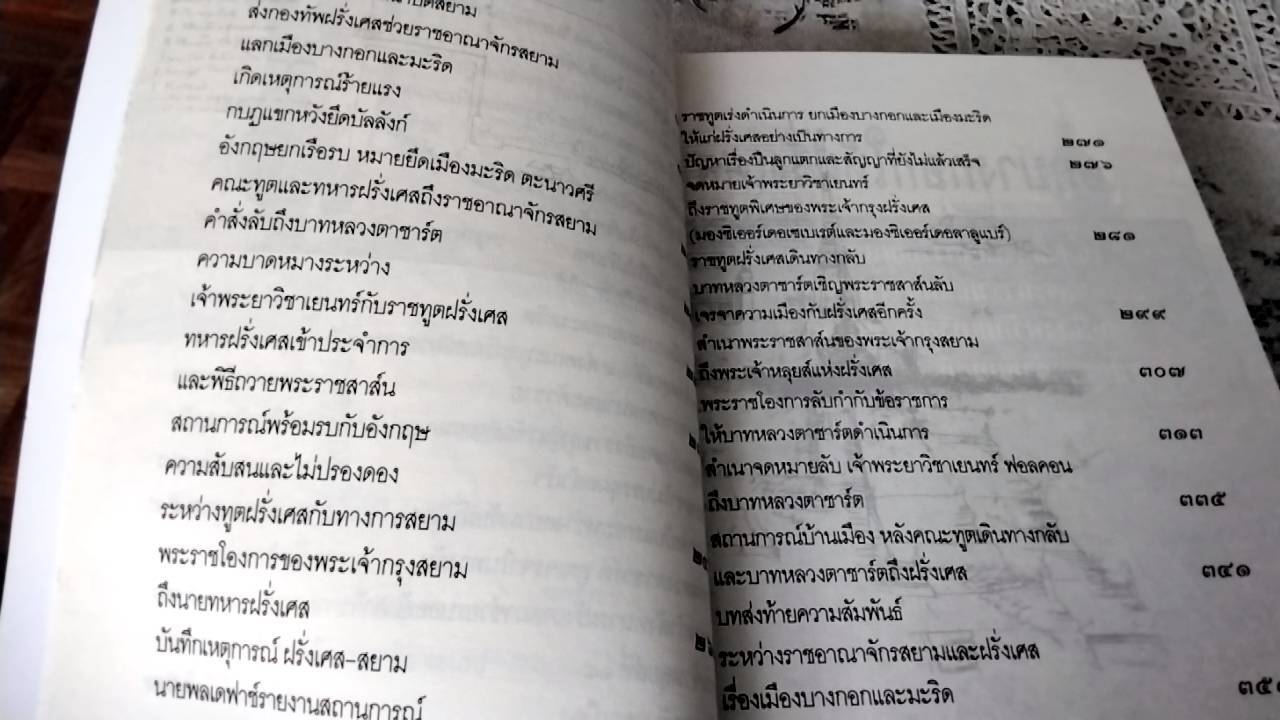 ส่งกองทัพฝรั่งเศสช่วยราชอาณาจักรสยาม
แลกเมืองบางกอกและมะริด
เกิดเหตุการณ์ร้ายแรง
กบฏแขกหวังยึดบัลลังก์
อังกฤษยกเรือรบ หมายยึดเมืองมะริด ตะนาวศรี
คณะทูตและทหารฝรั่งเศสถึงราชอาณาจักรสยาม
คำสั่งลับถึงบาทหลวงตาชาร์ต
ความบาดหมางระหว่าง
เจ้าพระยาวิชาเยนทร์กับราชทูตฝรั่งเศส
ทหารฝรั่งเศสเข้าประจำการ
และพิธีถวายพระราชสาส์น
สถานการณ์พร้อมรบกับอังกฤษ
ความสับสนและไม่ปรองดอง
ระหว่างทูตฝรั่งเศสกับทางการสยาม
พระราชโองการของพระเจ้ากรุงสยาม
ถึงนายทหารฝรั่งเศส
บันทึกเหตุการณ์ ฝรั่งเศส-สยาม
นายพลเดฟาช์รายงานสถานการณ์
ราชทูตเร่งดำเนินการ ยกเมืองบางกอกและเมืองมะริด
ให้แก่ฝรั่งเศสอย่างเป็นทางการ ๒๗๑
ปัญหาเรื่องปืนลูกแตกและสัญญาที่ยังไม่แล้วเสร็จ ๒๗๖
จดหมายเจ้าพระยาวิชาเยนทร์
ถึงราชทูตพิเศษของพระเจ้ากรุงฝรั่งเศส
(มองซิเออร์เดอเซเบเรต์และมองซิเออร์เดอลาลูแบร์) ๒๘๑
ราชทูตฝรั่งเศสเดินทางกลับ
บาทหลวงตาชาร์ตเชิญพระราชสาส์นลับ
เจรจาความเมืองกับฝรั่งเศสอีกครั้ง ๒๙๙
สำเนาพระราชสาส์นของพระเจ้ากรุงสยาม
ถึงพระเจ้าหลุยส์แห่งฝรั่งเศส ๓๐๗
พระราชโองการลับกำกับข้อราชการ
ให้บาทหลวงตาชาร์ตดำเนินการ ๓๑๓
สำเนาจดหมายลับ เจ้าพระยาวิชาเยนทร์ ฟอลคอน
ถึงบาทหลวงตาชาร์ต ๓๓๕
สถานการณ์บ้านเมือง หลังคณะทูตเดินทางกลับ
และบาทหลวงตาชาร์ตถึงฝรั่งเศส ๓๔๑
บทส่งท้ายความสัมพันธ์
ระหว่างราชอาณาจักรสยามและฝรั่งเศส
เรื่องเมืองบางกอกและมะริด